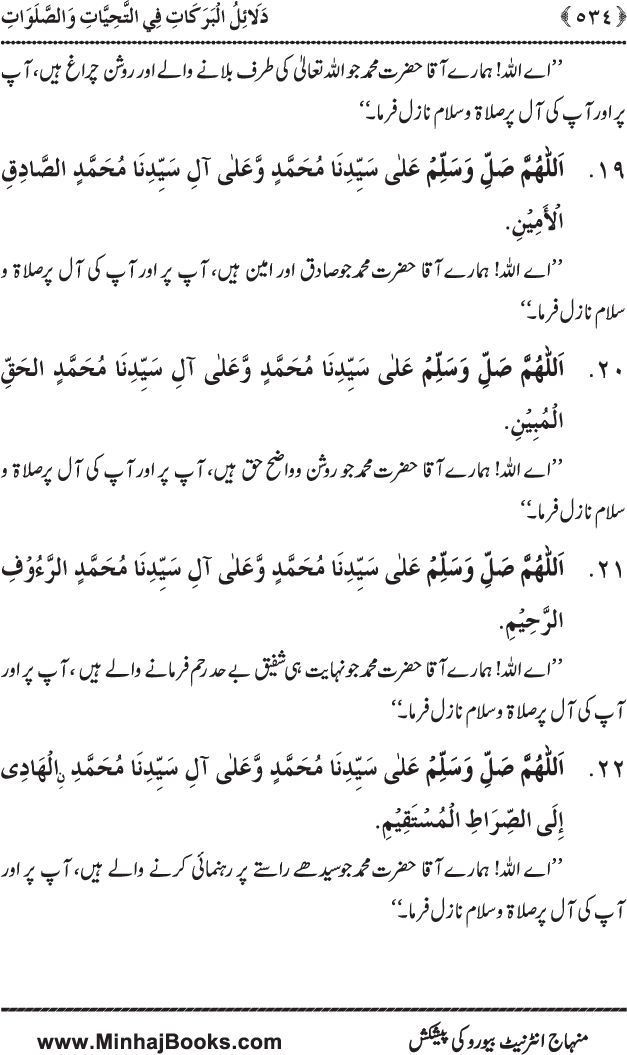 ﴿٥٣٤﴾ دَلَائِلُ الْبَرَكَاتِ فِي التَّحِيَّاتِ وَالصَّلَوَاتِ
’’اے اللہ! ہمارے آقا حضرت محمد جو اللہ تعالیٰ کی طرف بلانے والے اور روشن چراغ ہیں، آپ
پر اور آپ کی آل پر صلاۃ و سلام نازل فرما۔‘‘
١٩. اَللّٰهُمَّ صَلِّ وَسَلِّمْ عَلٰی سَیِّدِنَا مُحَمَّدٍ وَّعَلٰی آلِ سَیِّدِنَا مُحَمَّدٍ الصَّادِقِ
الْأَمِیْنِ.
’’اے اللہ! ہمارے آقا حضرت محمد جو صادق اور امین ہیں، آپ پر اور آپ کی آل پر صلاۃ و
سلام نازل فرما۔‘‘
٢٠. اَللّٰهُمَّ صَلِّ وَسَلِّمْ عَلٰی سَیِّدِنَا مُحَمَّدٍ وَّعَلٰی آلِ سَیِّدِنَا مُحَمَّدٍ الْحَقِّ
الْمُبِیْنِ.
’’اے اللہ! ہمارے آقا حضرت محمد جو روشن و واضح حق ہیں، آپ پر اور آپ کی آل پر صلاۃ و
سلام نازل فرما۔‘‘
٢١. اَللّٰهُمَّ صَلِّ وَسَلِّمْ عَلٰی سَیِّدِنَا مُحَمَّدٍ وَّعَلٰی آلِ سَیِّدِنَا مُحَمَّدٍ الرَّءُوْفِ
الرَّحِیْمِ.
’’اے اللہ! ہمارے آقا حضرت محمد جو نہایت ہی شفیق بے حد رحم فرمانے والے ہیں، آپ پر اور
آپ کی آل پر صلاۃ و سلام نازل فرما۔‘‘
٢٢. اَللّٰهُمَّ صَلِّ وَسَلِّمْ عَلٰی سَیِّدِنَا مُحَمَّدٍ وَّعَلٰی آلِ سَیِّدِنَا مُحَمَّدِ نِ الْهَادِی
إِلَی الصِّرَاطِ الْمُسْتَقِیْمِ.
’’اے اللہ! ہمارے آقا حضرت محمد جو سیدھے راستے پر رہنمائی کرنے والے ہیں، آپ پر اور
آپ کی آل پر صلاۃ و سلام نازل فرما۔‘‘
منہاج انٹرنیٹ بیورو کی پیشکش www.MinhajBooks.com